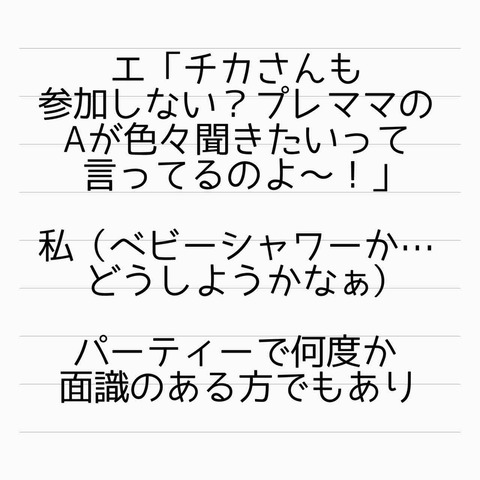 エ「チカさんも
参加しない？プレママの
Aが色々聞きたいって
言ってるのよ〜！」
私（ベビーシャワーか…
どうしようかなぁ）
パーティーで何度か
面識のある方でもあり